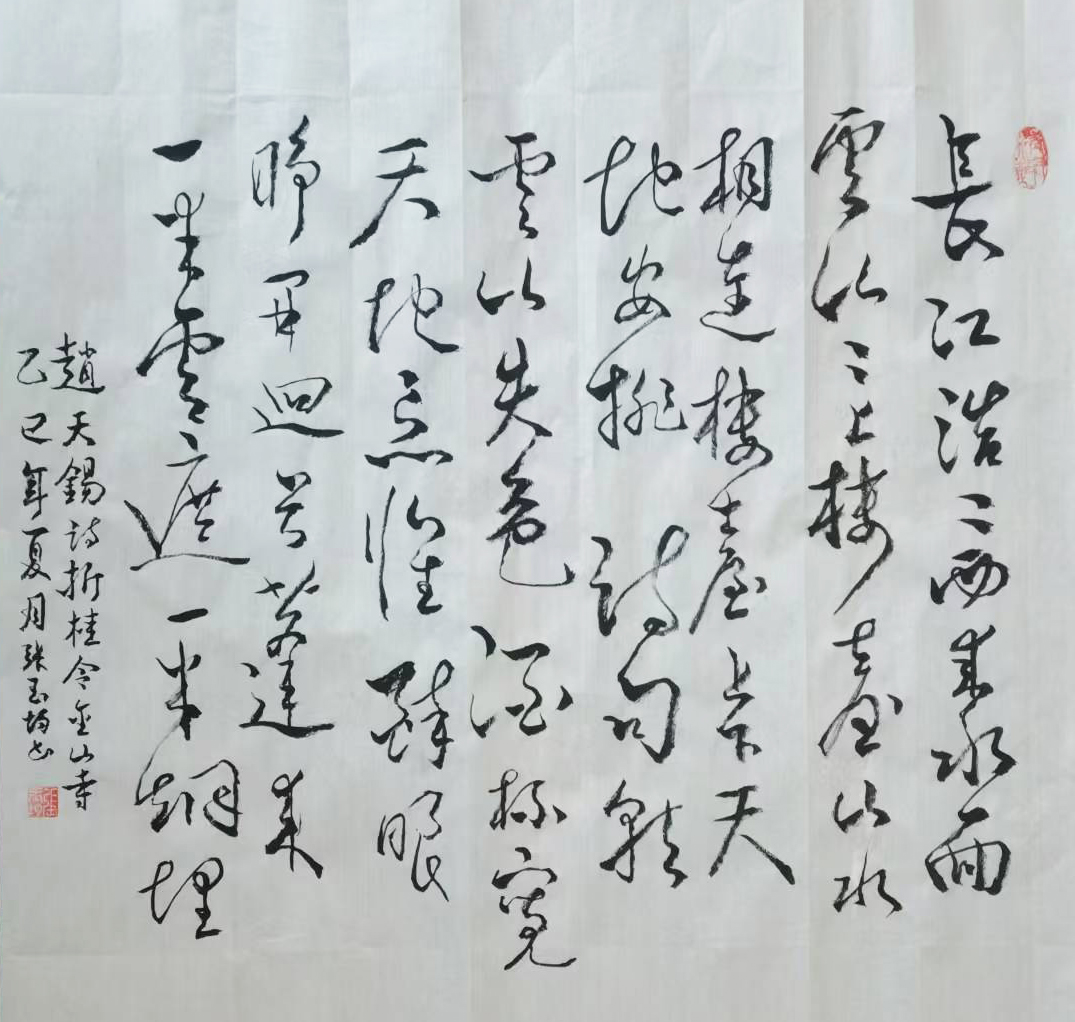 長江浩〻西來水面
雲山〻上樓臺山水
相連樓臺上下天
地安排詩句就
雲山失色酒杯寬
天地忘懷醉眼
睜開迴首蓬萊
一半雲遮一半烟埋
趙天錫詩折桂令金山寺
乙巳年夏月張玉書